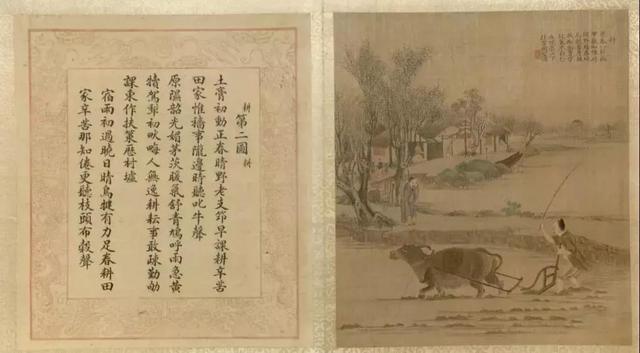 耕 第二圖 耕
土膏初動正春晴野老支筇早課耕辛苦
田家惟穡事隴邊時聽叱牛聲
原濕韶光媚茅茨暖氣舒青鳩呼雨急黃
犢駕犂初畎畝人無逸耕耘事敢疎勤劬
課東作扶策歷村墟
宿雨初過曉日晴烏犍有力足春耕田
家辛苦那知倦更聽枝頭布穀聲
耕